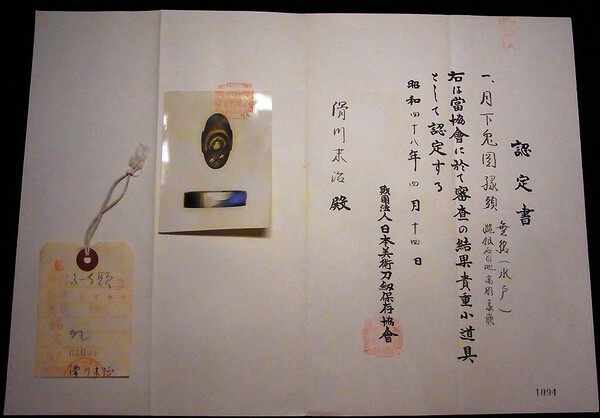 認定書
一、月下鬼図縁頭 無銘(水戸)
右は當協會に於て審査の結果貴重小道具
として認定する
昭和四十八年四月十四日
財団法人日本美術刀剣保存協會
滑川末治殿
頭
滑川末治
1094